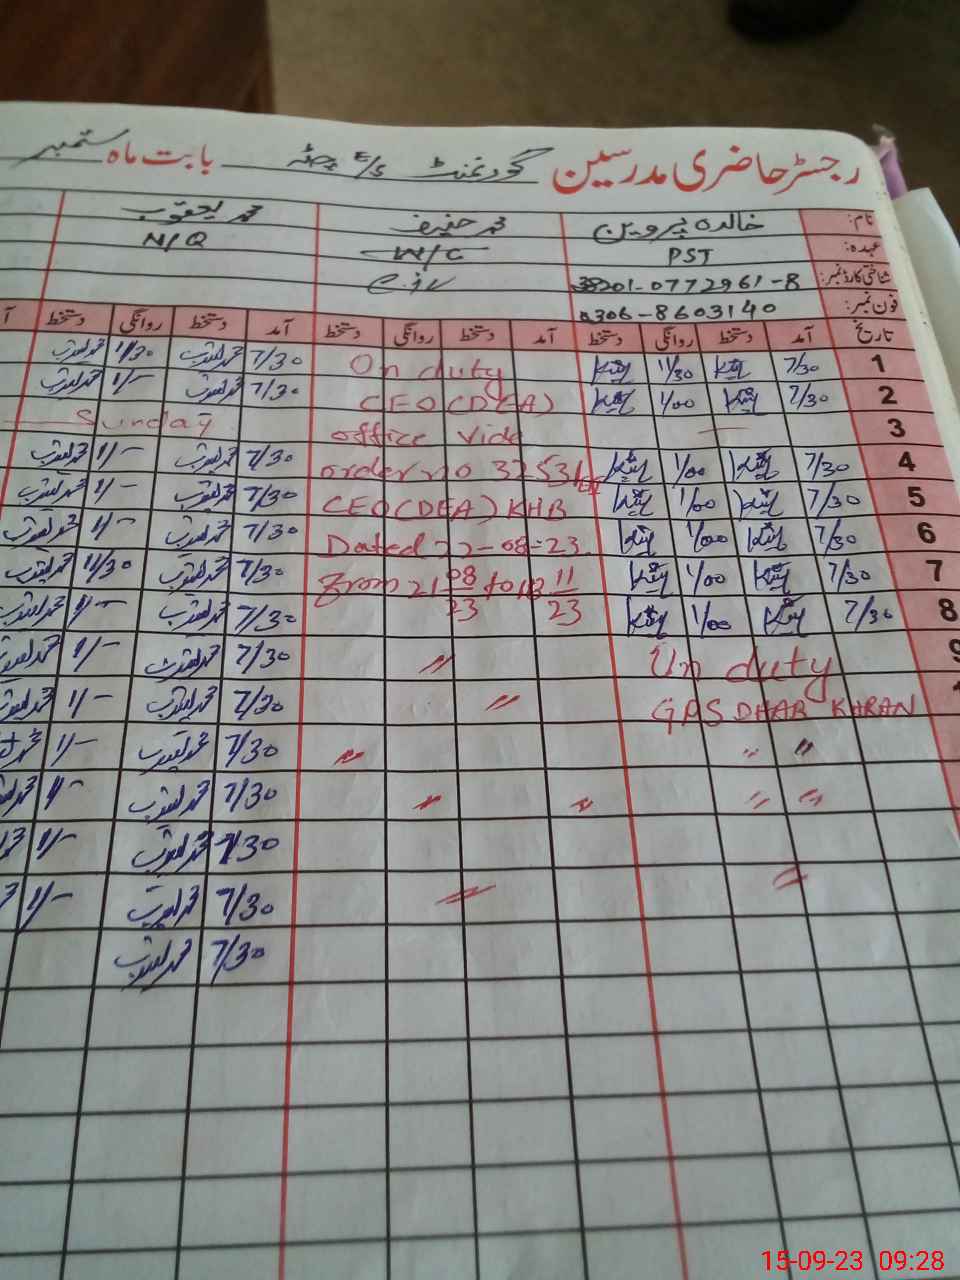 رجسٹر حاضری مدرسین گورنمنٹ E/S بابت ماہ ستمبر
نام: خالدہ پروین محمد حنیف محمد یعقوب
عہدہ: PST W/C N/Q
شناختی کارڈ نمبر: 38201-0772961-8
فون نمبر: 0306-8603140
تاریخ آمد دستخط روانگی دستخط آمد دستخط روانگی دستخط آمد دستخط روانگی دستخط آ
1 7/30 11/30 On duty 7/30 محمد یعقوب 11/30 محمد یعقوب
2 7/30 1/00 CEO(DEA) 7/30 محمد یعقوب 1/- محمد یعقوب
3 — office vide Sunday
4 7/30 1/00 order no 3253/ 7/30 محمد یعقوب 1/- محمد یعقوب
5 7/30 1/00 CEO(DEA) KHB 7/30 محمد یعقوب 1/- محمد یعقوب
6 7/30 1/00 Dated 22-08-23. 7/30 محمد یعقوب 1/- محمد یعقوب
7 7/30 1/00 From 21 08/23 to 11/23 7/30 محمد یعقوب 11/30 محمد یعقوب
8 7/30 1/00 7/30 محمد یعقوب 1/- محمد یعقوب
9 On duty 〃 7/30 محمد یعقوب 1/- محمد یعقوب
1 GPS DHAR KARAN 〃 7/30 محمد یعقوب 1/- محمد یعقوب
〃 〃 〃 7/30 محمد یعقوب 1/-
〃 〃 〃 〃 7/30 محمد یعقوب 1/-
7/30 محمد یعقوب 1/-
〃 〃 7/30 محمد یعقوب 1/-
7/30 محمد یعقوب
15-09-23 09:28